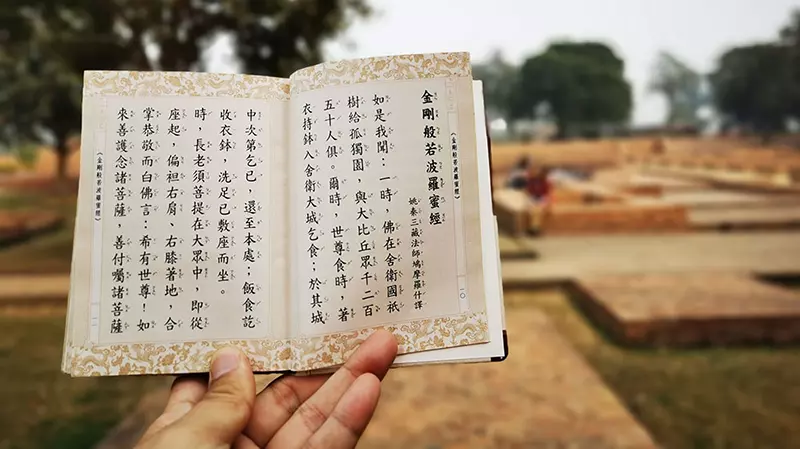 《金剛般若波羅蜜經》
一〇
金剛般若波羅蜜經
姚秦三藏法師鳩摩羅什譯
如是我聞：一時，佛在舍衛國祇
樹給孤獨園，與大比丘眾千二百
五十人俱。爾時，世尊食時，著
衣持鉢入舍衛大城乞食；於其城
中次第乞已，還至本處；飯食訖
收衣鉢，洗足已敷座而坐。
時，長老須菩提在大眾中，即從
座起，偏袒右肩、右膝著地，合
掌恭敬而白佛言：希有世尊！如
來善護念諸菩薩，善付囑諸菩薩
《金剛般若波羅蜜經》